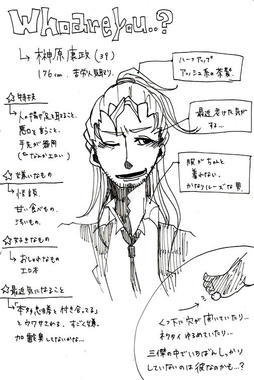 Who are you..?
榊原康政(39)
176cm 苦労人気取り。
ハーフアップ
アッシュ系の茶髪。
最近老けた気が
する…
服がちゃんと
着れない。
かなりルーズな男
☆特技
人の揚げ足を取ること。
悪口を言うこと。
手先が器用
☆嫌いなもの
怪談、
甘い食べもの、
☆好きなもの
おしゃれなもの
エロ本
☆最近気になること
「本多忠勝と付き合ってる」
とウワサされる。すごく嫌。
くつ下に穴が開いていたり…
ネクタイゆるめていたり…
三傑の中でいちばんしっかり
していないのは彼なのかも…?